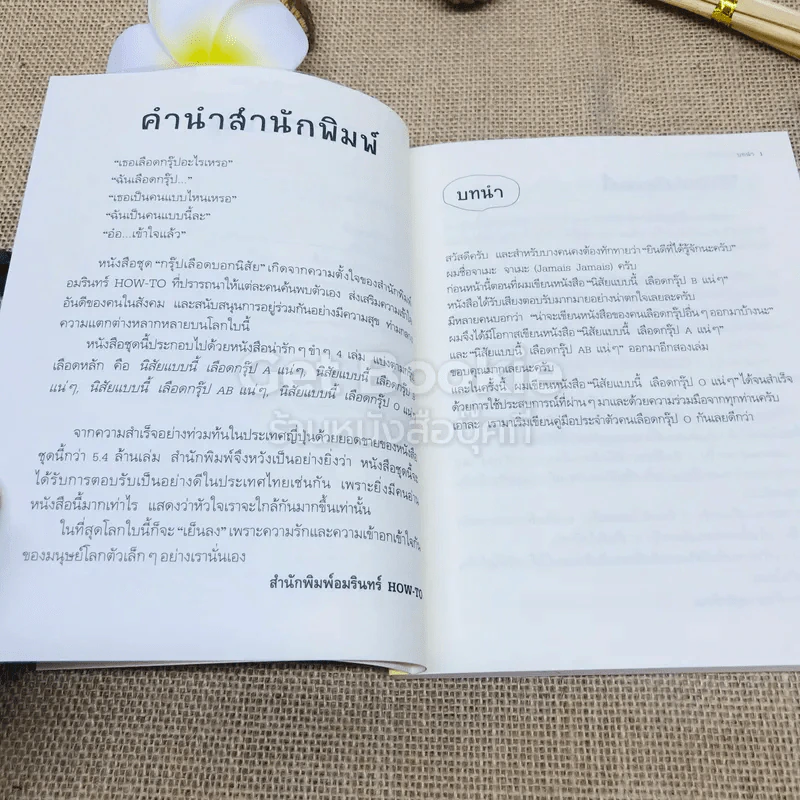 คำนำสำนักพิมพ์
“เธอเลือดกรุ๊ปอะไรเหรอ”
“ฉันเลือดกรุ๊ป...”
“เธอเป็นคนแบบไหนเหรอ”
“ฉันเป็นคนแบบนี้ละ”
“อ๋อ...เข้าใจแล้ว”
หนังสือชุด “กรุ๊ปเลือดบอกนิสัย” เกิดจากความตั้งใจของสำนักพิมพ์
อมรินทร์ HOW-TO ที่ปรารถนาให้แต่ละคนค้นพบตัวเอง ส่งเสริมความเข้าใจ
อันดีของคนในสังคม และสนับสนุนการอยู่ร่วมกันอย่างมีความสุข ท่ามกลาง
ความแตกต่างหลากหลายบนโลกใบนี้
หนังสือชุดนี้ประกอบไปด้วยหนังสือน่ารักๆ ขำๆ 4 เล่ม แบ่งตามกรุ๊ป
เลือดหลัก คือ นิสัยแบบนี้ เลือดกรุ๊ป A แน่ๆ, นิสัยแบบนี้ เลือดกรุ๊ป B
แน่ๆ, นิสัยแบบนี้ เลือดกรุ๊ป AB แน่ๆ, นิสัยแบบนี้ เลือดกรุ๊ป O แน่ๆ
จากความสำเร็จอย่างท่วมท้นในประเทศญี่ปุ่นด้วยยอดขายของหนังสือ
ชุดนี้กว่า 5.4 ล้านเล่ม สำนักพิมพ์จึงหวังเป็นอย่างยิ่งว่า หนังสือชุดนี้จะ
ได้รับการตอบรับเป็นอย่างดีในประเทศไทยเช่นกัน เพราะยิ่งมีคนอ่าน
หนังสือนี้มากเท่าไร แสดงว่าหัวใจเราจะใกล้กันมากขึ้นเท่านั้น
ในที่สุดโลกใบนี้ก็จะ “เย็นลง” เพราะความรักและความเข้าอกเข้าใจกัน
ของมนุษย์โลกตัวเล็กๆ อย่างเรานั่นเอง
สำนักพิมพ์อมรินทร์ HOW-TO
บทนำ 1
บทนำ
สวัสดีครับ และสำหรับบางคนคงต้องทักทายว่า “ยินดีที่ได้รู้จักนะครับ”
ผมชื่อจาเมะ จาเมะ (Jamais Jamais) ครับ
ก่อนหน้านี้ตอนที่ผมเขียนหนังสือ “นิสัยแบบนี้ เลือดกรุ๊ป B แน่ๆ”
หนังสือได้รับเสียงตอบรับมากมายอย่างน่าตกใจเลยละครับ
มีหลายคนบอกว่า “น่าจะเขียนหนังสือของคนเลือดกรุ๊ปอื่นๆ ออกมาบ้างนะ”
ผมจึงได้มีโอกาสเขียนหนังสือ “นิสัยแบบนี้ เลือดกรุ๊ป A แน่ๆ”
และ “นิสัยแบบนี้ เลือดกรุ๊ป AB แน่ๆ” ออกมาอีกสองเล่ม
ขอบคุณมากเลยนะครับ
และในครั้งนี้ ผมเขียนหนังสือ “นิสัยแบบนี้ เลือดกรุ๊ป O แน่ๆ” ได้จนสำเร็จ
ด้วยการใช้ประสบการณ์ที่ผ่านๆ มาและด้วยความร่วมมือจากทุกท่านครับ
เอาละ เรามาเริ่มเขียนคู่มือประจำตัวคนเลือดกรุ๊ป O กันเลยดีกว่า
ร้านหนังสือบุคที